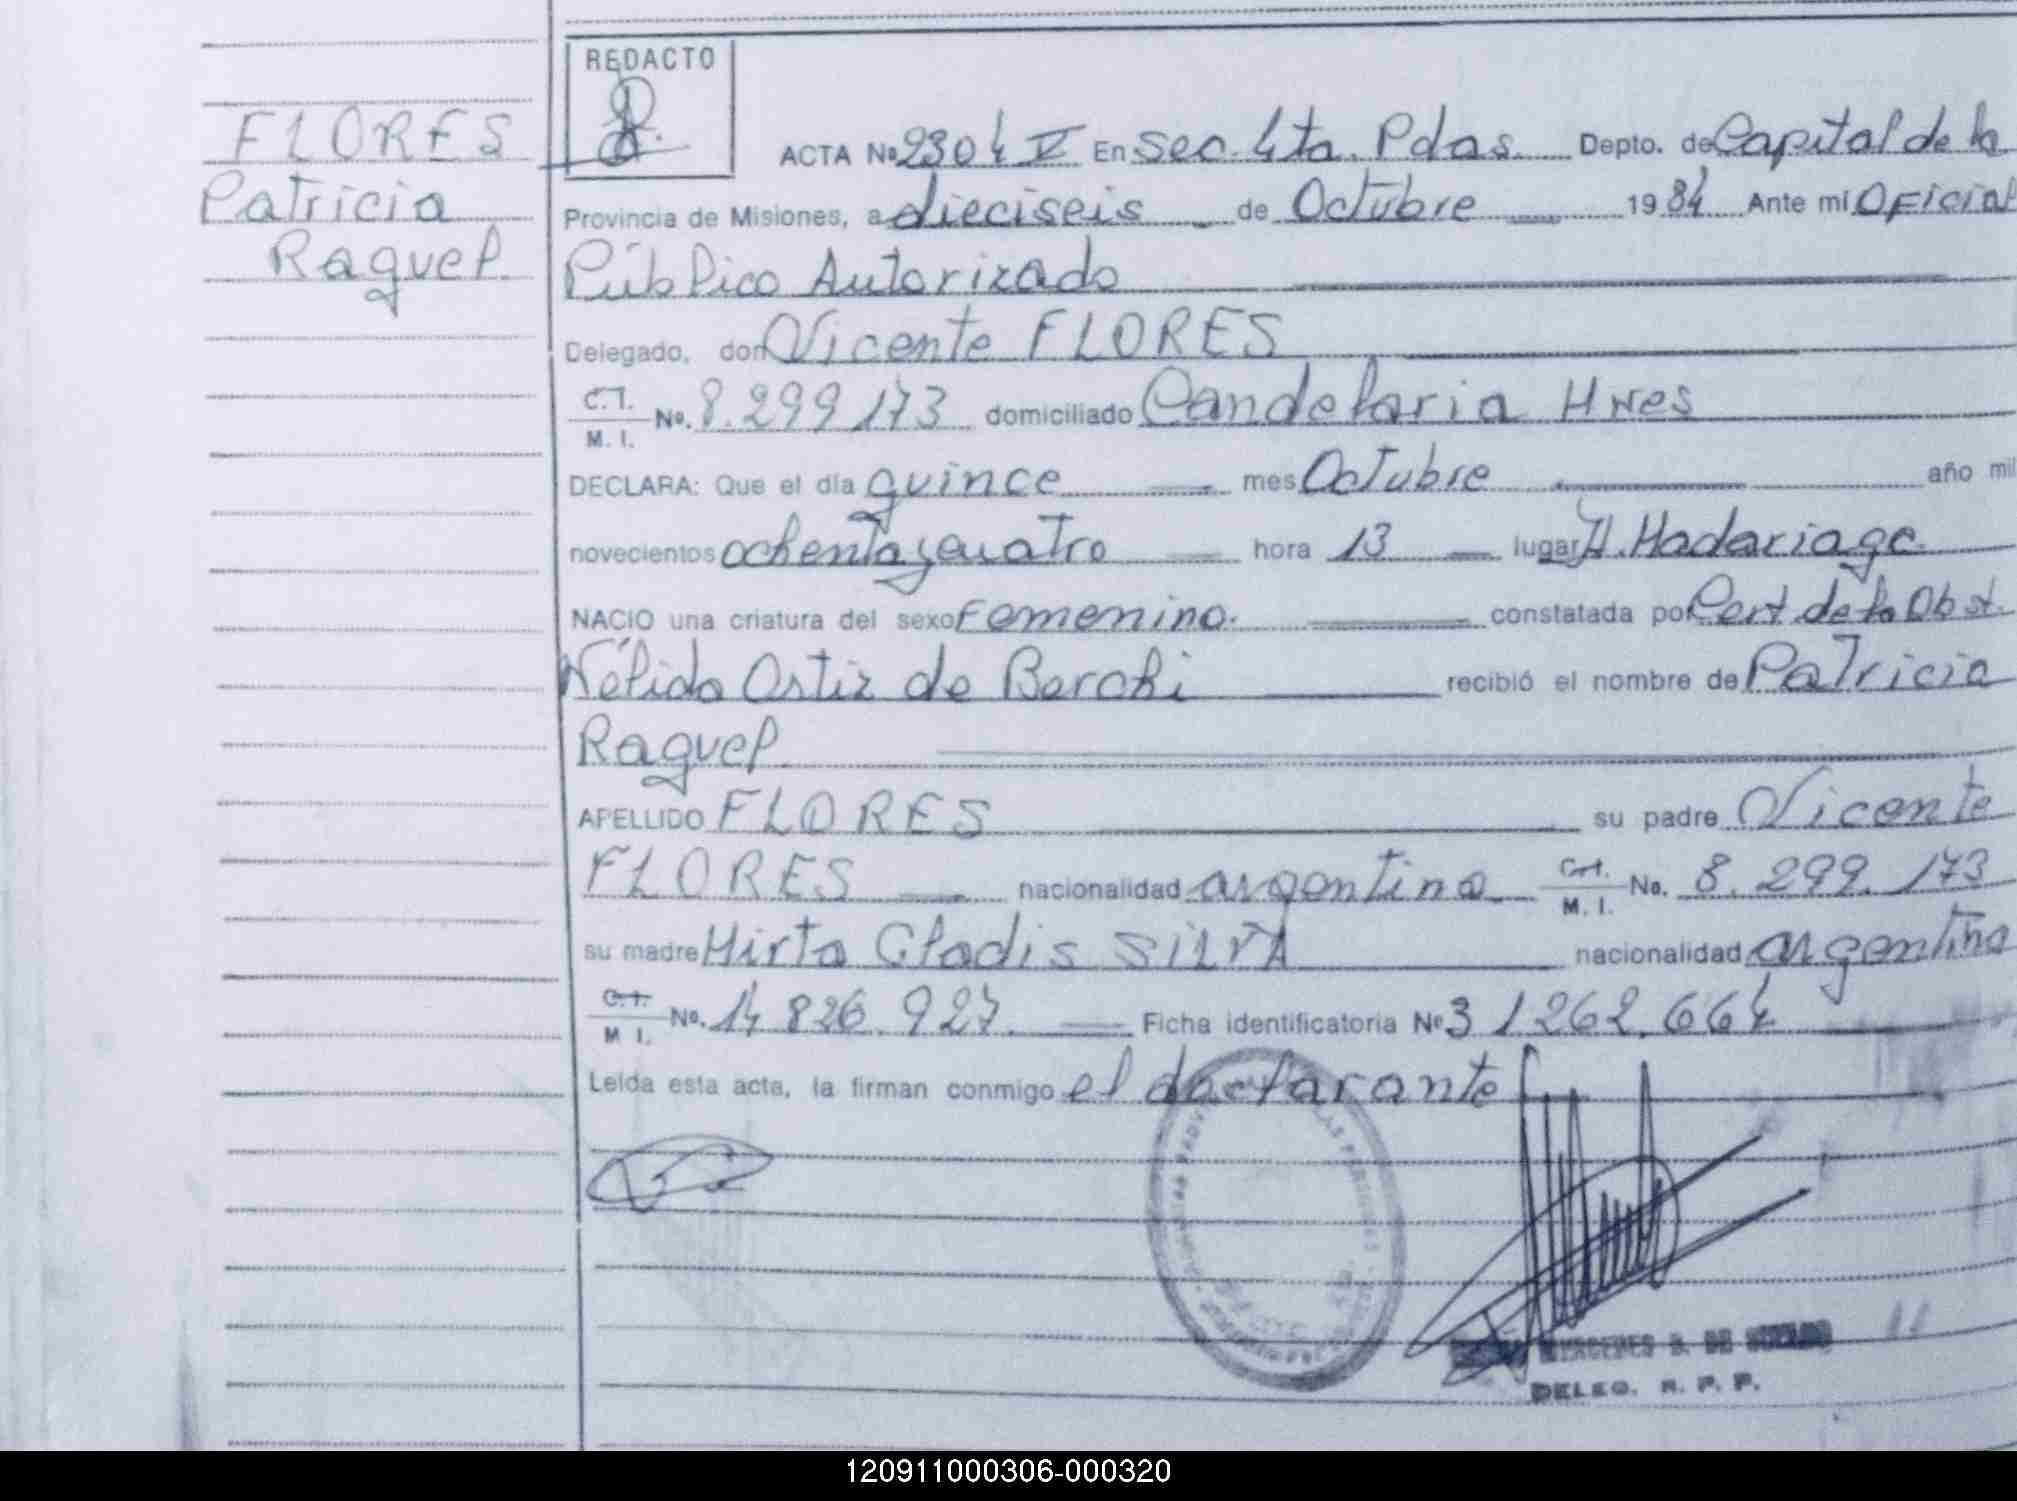 REDACTO
FLORES
Patricia
Raquel
ACTA Nº 2304 V En Sec. 4ta. Pdas. Depto. de Capital de la
Provincia de Misiones, a dieciseis de Octubre 1984 Ante mi Oficial
Público Autorizado
Delegado, don Vicente FLORES
C.I.
M. I. Nº. 8.299.173 domiciliado Candelaria Mnes
DECLARA: Que el día quince mes Octubre año mil
novecientos ochenta y cuatro hora 13 lugar H. Madariaga
NACIO una criatura del sexo Femenino. constatada por Cert. de la Obst.
Nélida Ortiz de recibió el nombre de Patricia
Raquel
APELLIDO FLORES su padre Vicente
FLORES nacionalidad argentina C.I.
M. I. No. 8.299.173
su madre Mirta Gladis SILVA nacionalidad argentina
C.I.
M I. Nº. 14.826.927. Ficha identificatoria Nº 31262.664
Leída esta acta, la firman conmigo el declarante
MERCEDES DE
DELEG. R. P. P.
120911000306-000320